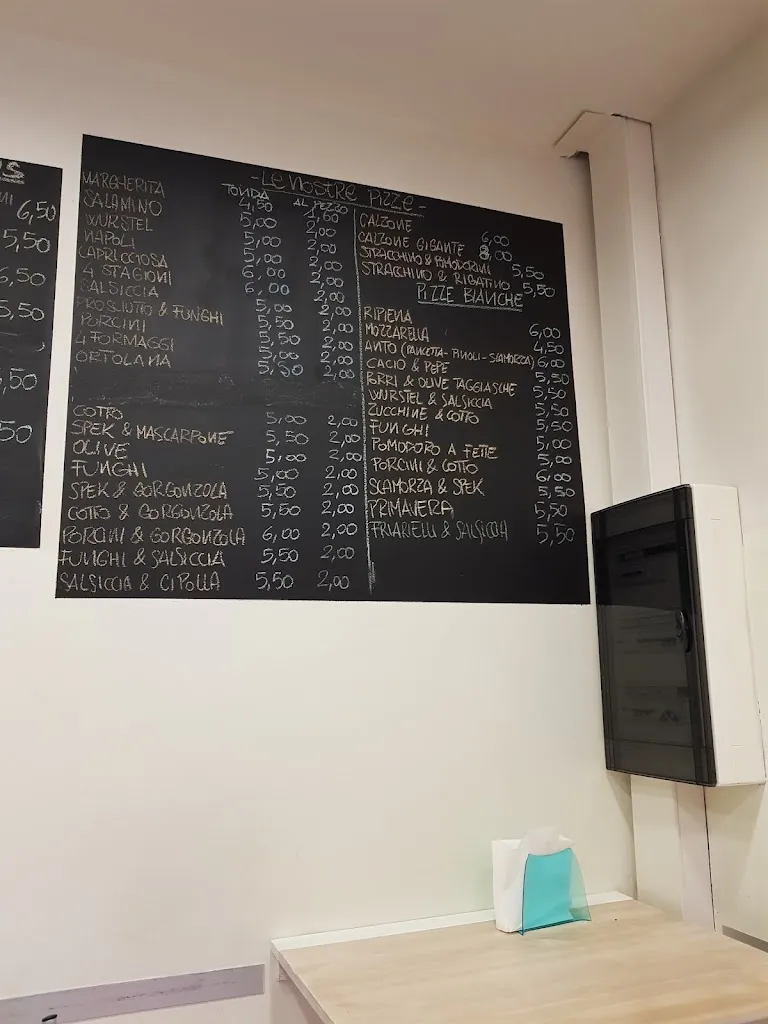 6,50
5,50
6,50
5,50
- Le Nostre Pizze -
TONDA AL PEZZO
MARGHERITA 4,50 1,60
SALAMINO 5,00 2,00
WURSTEL 5,00 2,00
NAPOLI 5,00 2,00
CAPRICCIOSA 6,00 2,00
4 STAGIONI 6,00 2,00
SALSICCIA 5,00 2,00
PROSCIUTTO & FUNGHI 5,50 2,00
PORCINI 5,50 2,00
4 FORMAGGI 5,00 2,00
ORTOLANA 5,50 2,00
COTTO 5,00 2,00
SPEK & MASCARPONE 5,50 2,00
OLIVE 5,00 2,00
FUNGHI 5,00 2,00
SPEK & GORGONZOLA 5,50 2,00
COTTO & GORGONZOLA 5,50 2,00
PORCINI & GORGONZOLA 6,00 2,00
FUNGHI & SALSICCIA 5,50 2,00
SALSICCIA & CIPOLLA 5,50 2,00
CALZONE 6,00
CALZONE GIGANTE 8,00
STRACCHINO & POMODORINI 5,50
STRACCHINO & RIGATINO 5,50
PIZZE BIANCHE
RIPIENA 6,00
MOZZARELLA 4,50
(PANCETTA - PINOLI - SCAMORZA) 6,00
CACIO & PEPE 5,50
PORRI & OLIVE TAGGIASCHE 5,50
WURSTEL & SALSICCIA 5,50
ZUCCHINE & COTTO 5,50
FUNGHI 5,00
POMODORO A FETTE 5,00
PORCINI & COTTO 6,00
SCAMORZA & SPEK 5,50
PRIMAVERA 5,50
FRIARIELLI & SALSICCIA 5,50